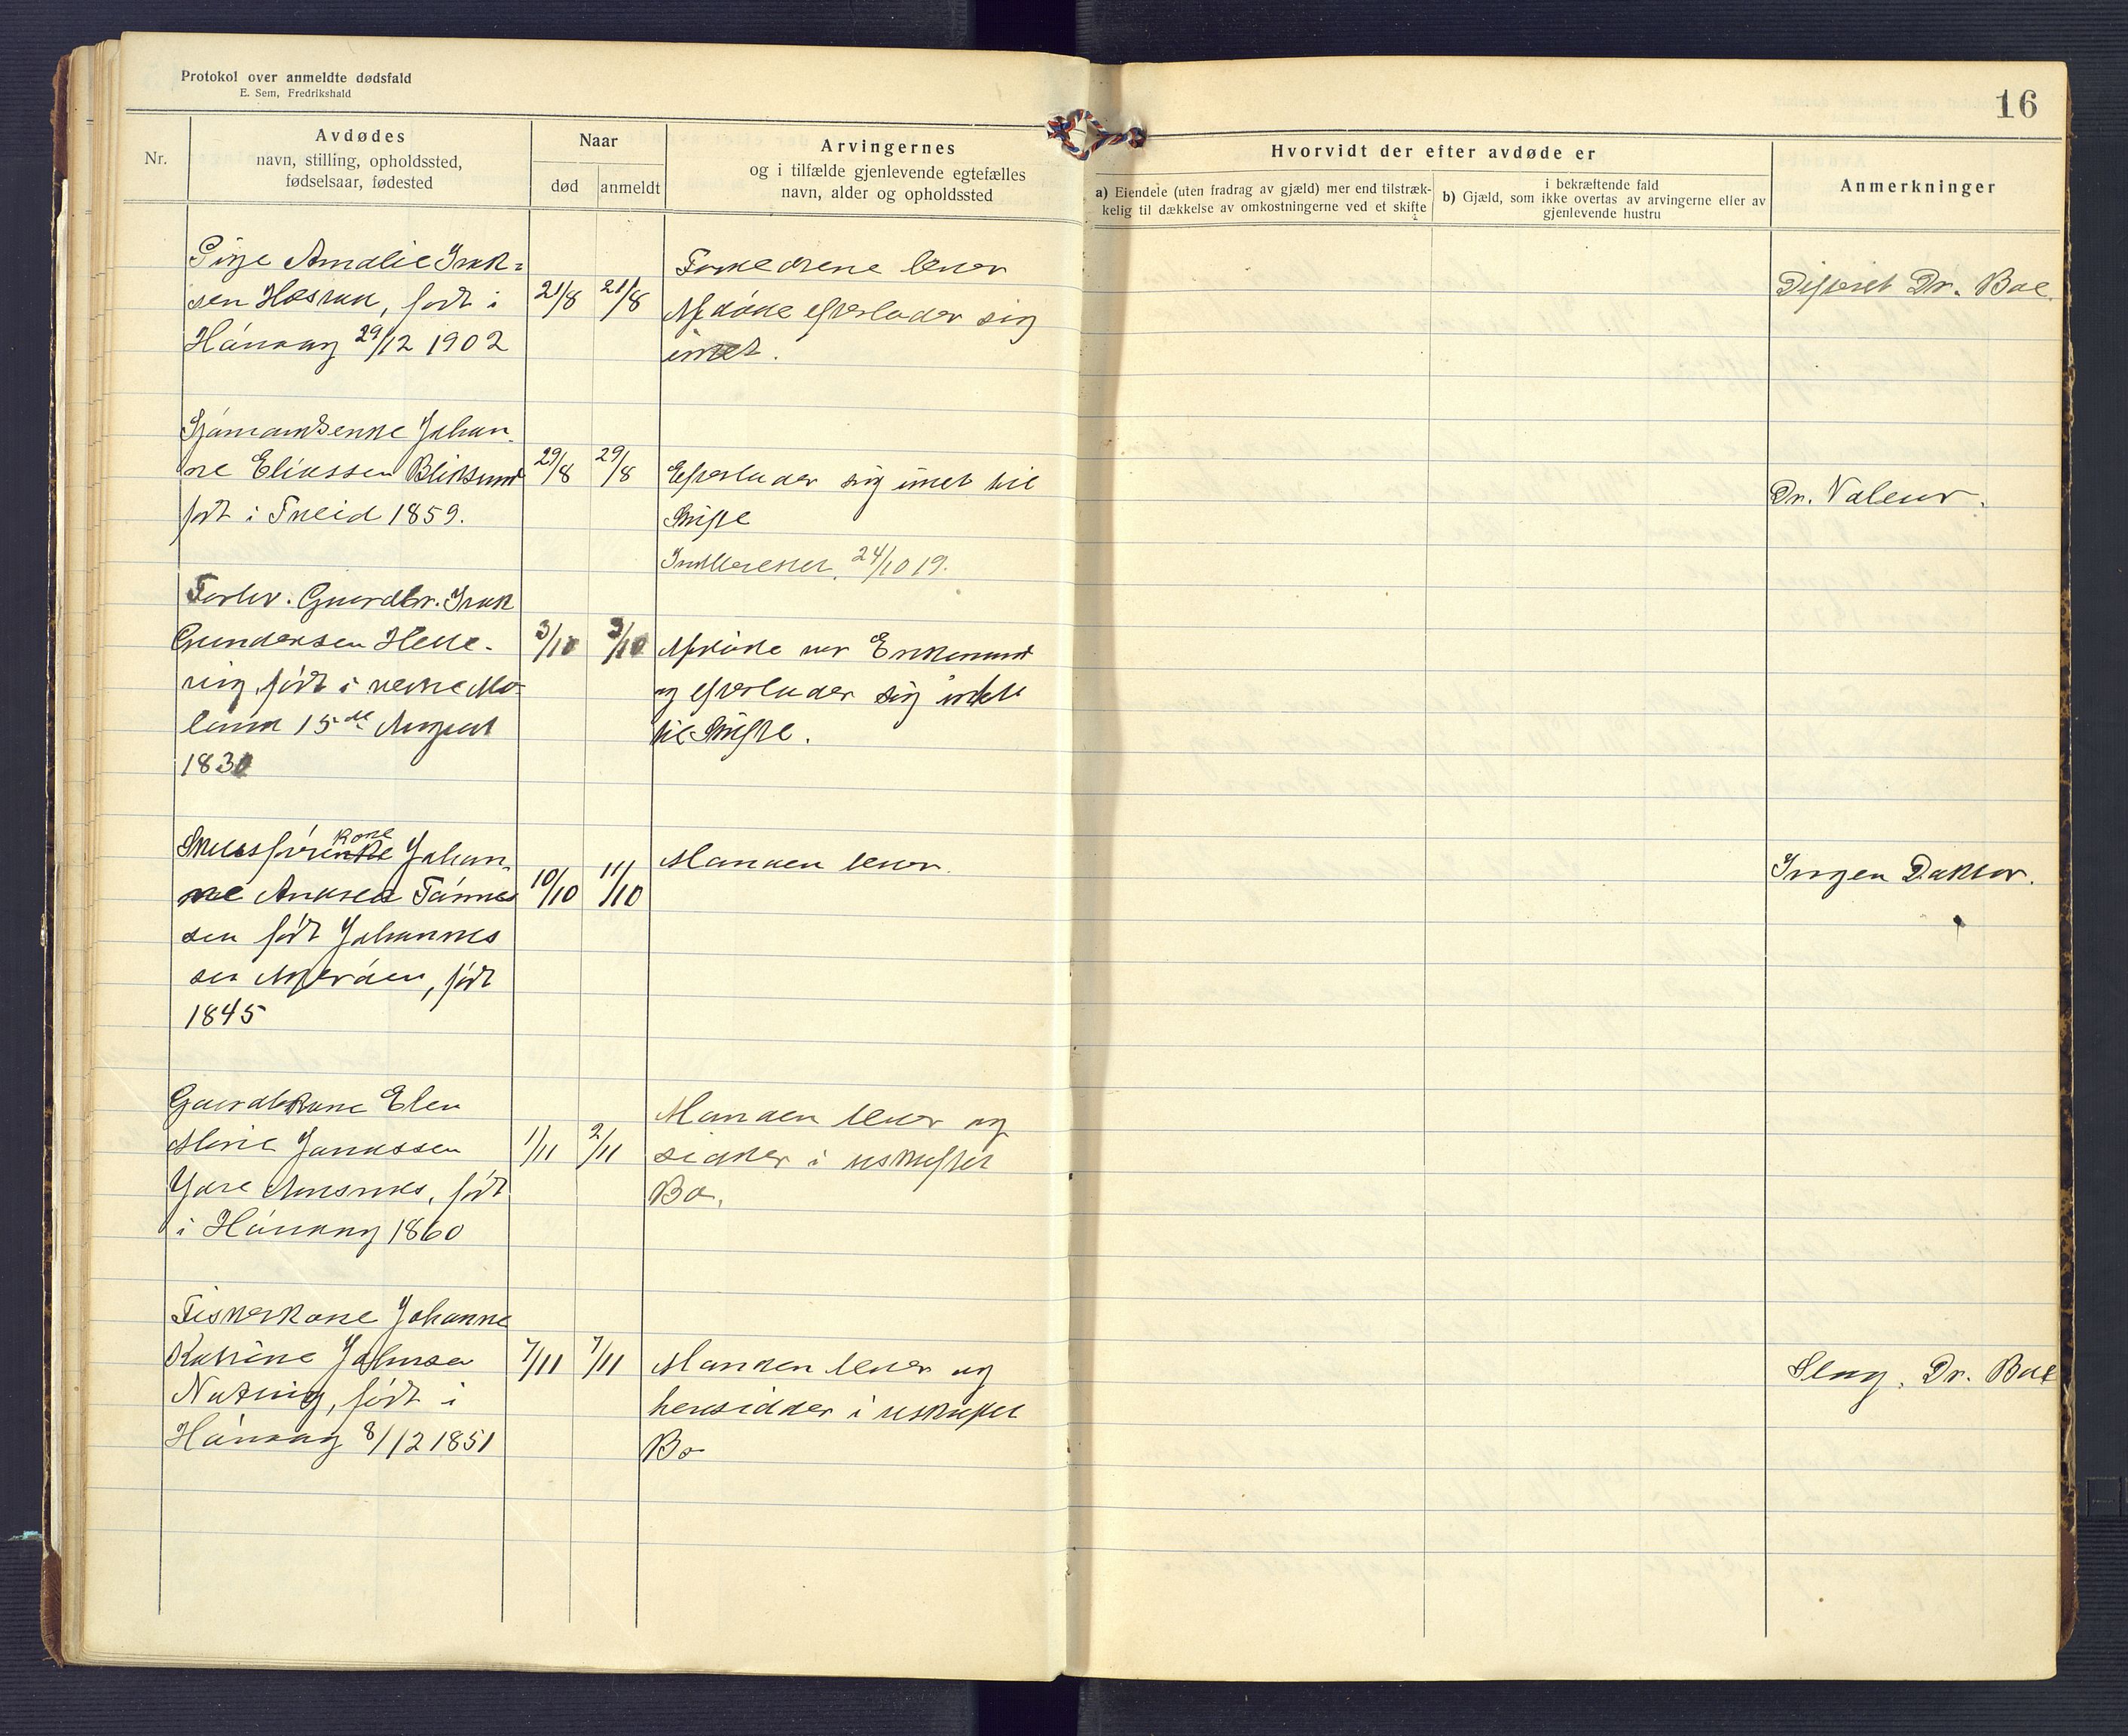 Protokol over anmeldte dødsfald
E. Sem, Fredrikshald
16
Nr.
Avdødes
navn, stilling, opholdssted,
fødselsaar, fødested
Naar
død
anmeldt
Arvingernes
og i tilfælde gjenlevende egtefælles
navn, alder og opholdssted
Hvorvidt der efter avdøde er
a) Eiendele (uten fradrag av gjæld) mer end tilstræk-
kelig til dækkelse av omkostningerne ved et skifte
i bekræftende fald
b) Gjæld, som ikke overtas av arvingerne eller av
gjenlevende hustru
Anmerkninger
Pige Amalie Isak-
sen, født i
Høvaag 29/12 1902
21/8
21/8
Foreldrene lever
Afdøde efterlader sig
intet.
Difterit Dr. Boe.
Sjømandsenke Johan-
ne Eliassen Bliksund
født i Treid 1859.
29/8
29/8
Efterlader sig intet til
Skifte
Indberettet 24/10 19.
Dr. Valeur.
Forhv. Gaardbr. Isak
Gundersen Helle-
vig, født i vestre Mo-
land 15de August
183
3/10
3/10
Afdøde var Enkemand
og efterlader sig intet
til Skifte.
Skibsfører kone Johan-
ne Andrea Tønnes
sen født Johannes
sen Aagerøen, født
1845
10/10
11/10
Manden lever.
Ingen Doktor.
Gaardbkone Elen
Marie Jonassen
født
i Høvaag 1860
1/11
2/11
Manden lever og
sidder i uskiftet
Bo.
Fiskerkone Johanne
Katrine Johnsen
Natvig, født i
Høvaag 8/12 1851
7/11
7/11
Manden lever og
hensidder i uskiftet
Bo
Slag. Dr. Boe